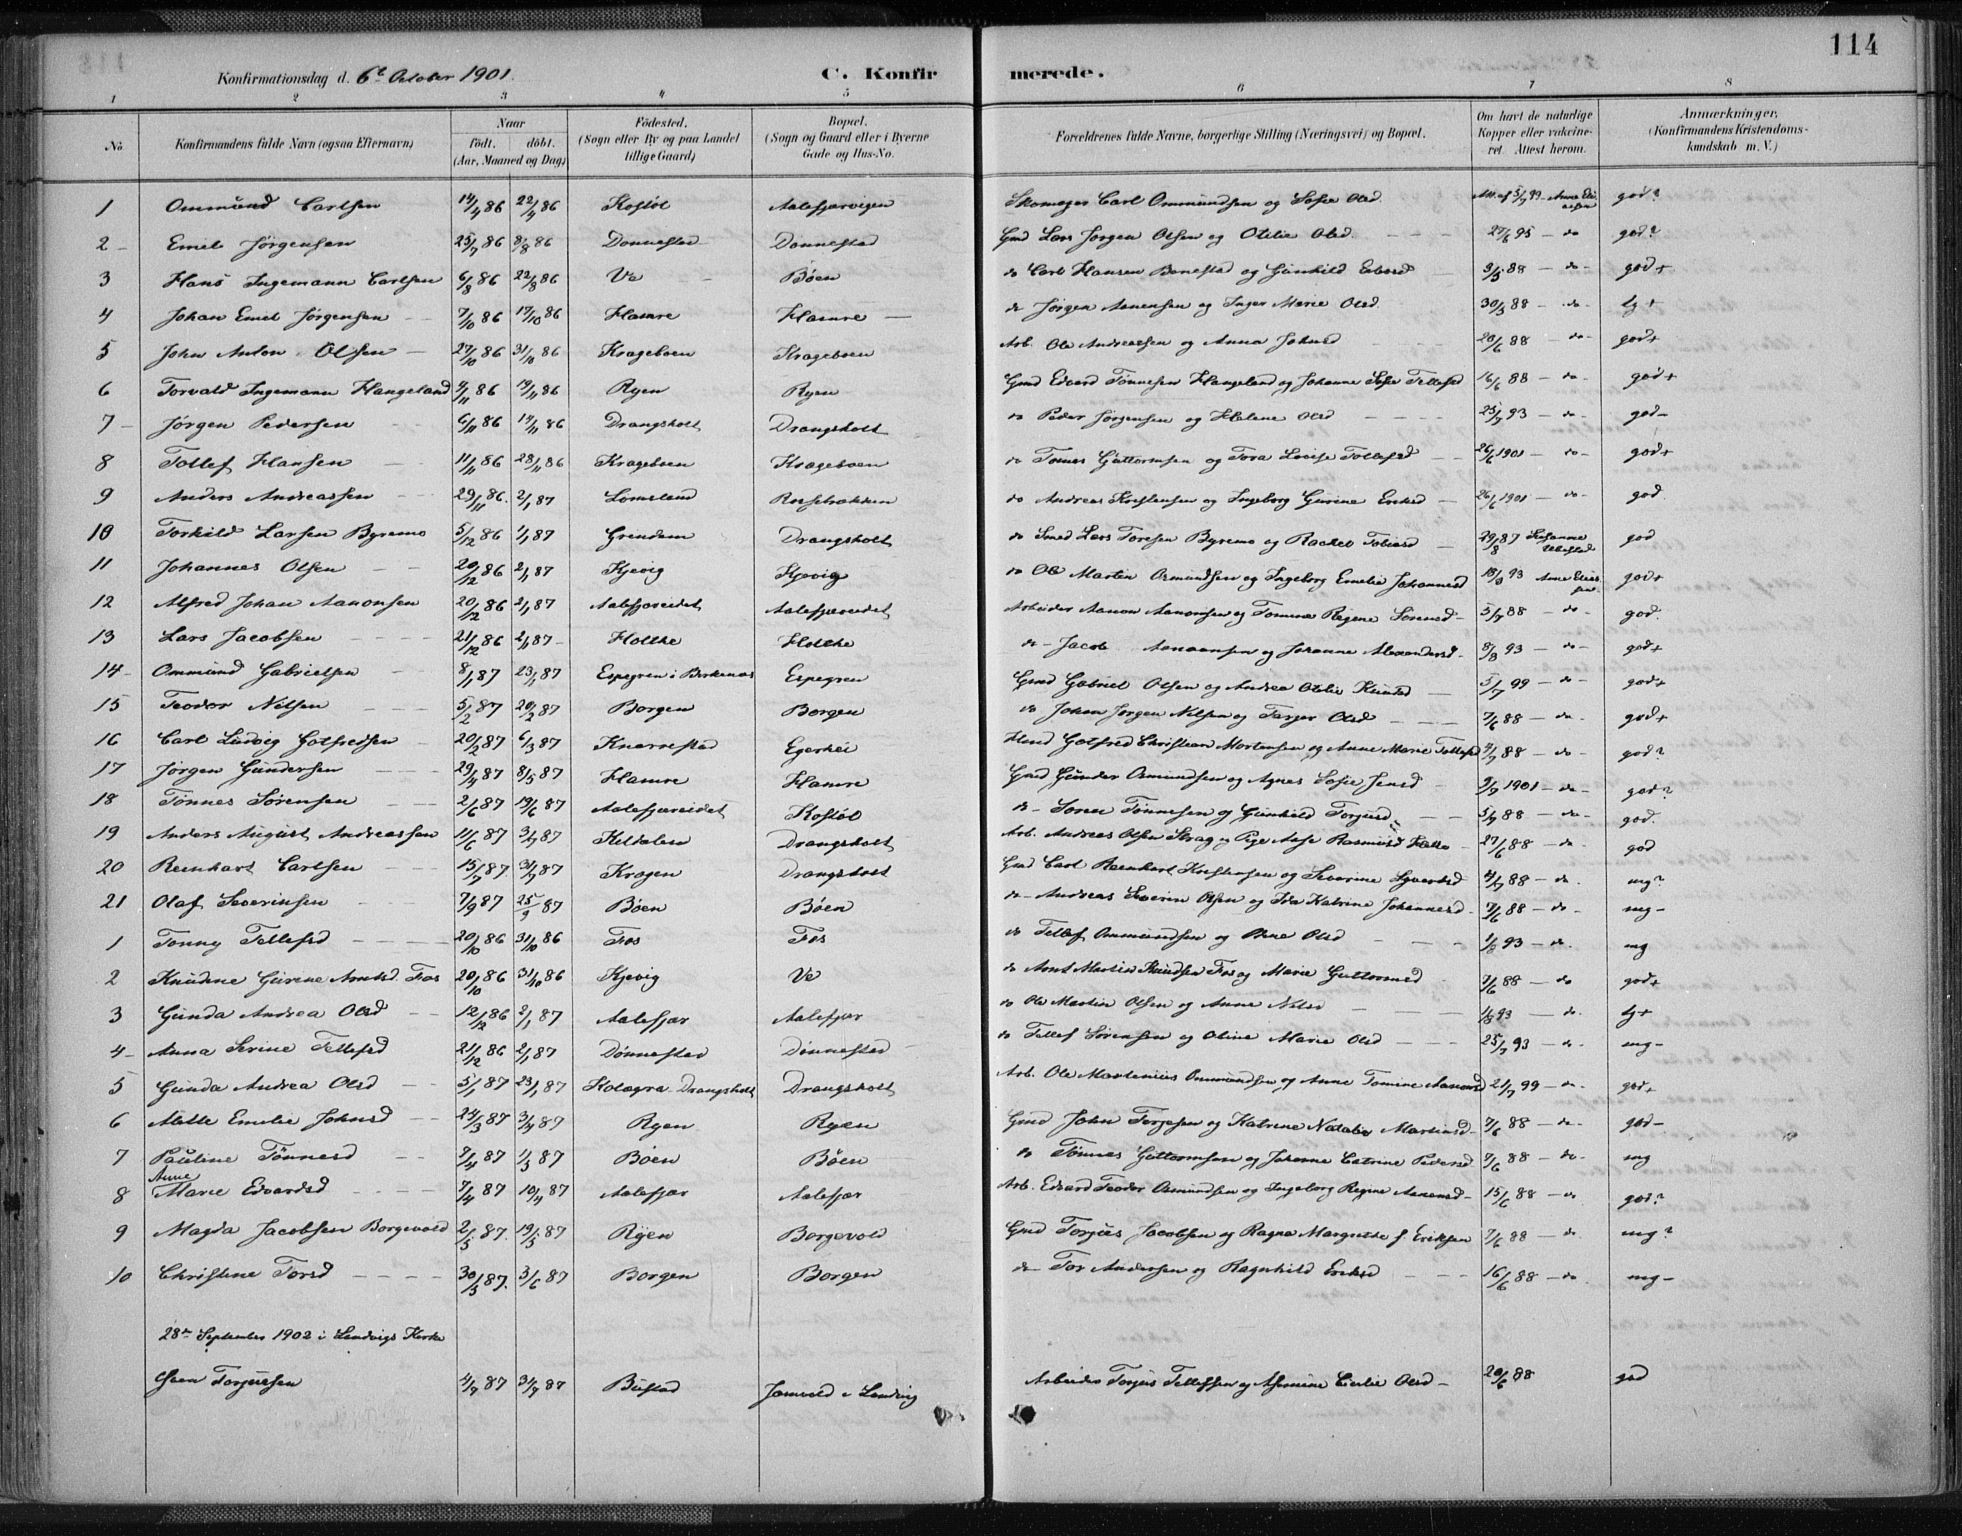 114
Konfirmationsdag d. 6t October 1901.
C. Konfirmerede.
1 2 3 4 5 6 7 8
No Konfirmandens fulde Navn (ogsaa Efternavn) Naar født. døbt. (Aar, Maaned og Dag) Fødested. (Sogn eller By og paa Landet tillige Gaard) Bopæl. (Sogn og Gaard eller i Byerne Gade og Hus-No. Forældrenes fulde Navne, borgerlige Stilling (Næringsvei) og Bopæl. Om havt de naturlige Kopper eller vakcineret. Attest herom. Anmærkninger. (Konfirmandens Kristendomskundskab m. V.)
1 Ommund Carlsen 14/4 86 22/4 86 Kostøl Aalefjærvigen Skomager Carl Ommundsen og Sofie Olsd. Att. af 5/7 99 god?
2 Emil Jørgensen 25/7 86 8/8 86 Dønnestad Dønnestad Gmd Lars Jørgen Olsen og Otilie Olsd. 27/6 95 - do god?
3 Hans Ingemann Carlsen 6/8 86 22/8 86 Ve Bøen do Carl Hansen Bonestad og Gunhild 3/5 88 - do - god+
4 Johan Emil Jørgensen 7/10 86 17/10 86 Hamre Hamre do Jørgen Aanensen og Inger Marie Olsd. 30/5 88 - do tg+
5 John Anton Olsen 27/10 86 31/10 86 Krageboen Krageboen Arb. Ole Andreassen og Anna Johnsd 20/6 88 - do god+
6 Torvald Ingemann Haugeland 4/11 86 14/11 86 Ryen Ryen Gmd Edvard Tønnesen Haugeland og Johanne Sofie Tellefsd 16/6 88 - do god+
7 Jørgen Pedersen 6/11 86 14/11 86 Drangsholt Drangsholt do Peder Jørgensen og Helene Olsd 25/7 93 - do god-
8 Tollef Hansen 11/11 86 28/11 86 Krageboen Krageboen do Tønnes Guttormsen og Tora Lovise Tollefsd 26/6 1901 - do god+
9 Anders Andreassen 29/11 86. 2/1 87 Lomeland Rossebækken do Andreas Kristensen og Ingeborg Gurine Eriksd 26/6 1901 - do god
10 Torkild Larsen Byremo 5/12 86 1/1 87 Grendem Drangsholt do Smed Lars Toresen Byremo og Rachel Tobiasd 29/8 87 Susanne god
11 Johannes Olsen 20/12 86 2/1 87 Kjevig Kjevig do Ole Martin Osmundsen og Ingeborg Emilie Johannesd 18/8 93 god+
12 Alfred Johan Aanonsen 20/12 86 2/1 87 Aalefjæreidet Aalefjæreidet Arbeider Aanon Aanonsen og Tomine Regine 5/7 88 - do god.
13 Lars Jacobsen 21/12 86 2/1 87 Holthe Holthe do - Jacob Aanonsen og Johanne Alexandersd 8/8 93 - do god+
14 Ommund Gabrielsen 8/1 87 23/1 87 Espegren i Birkenæs Espegren Gmd Gabriel Olsen og Andrea Otilie 5/7 99 - do god+
15 Teodor Nilsen 5/2 87 20/2 87 Borgen Borgen do Johan Jørgen Nilsen og Tarjer Olsd 7/6 88 - do god+
16 Carl Ludvig Gotfredsen 20/2 87 6/3 87 Knarrestad Egerhei Hmd Gotfred Christian Mortensen og Anne Marie Tellefsd 4/7 88 - do god?
17 Jørgen Gundersen 29/4 87 8/5 87 Hamre Hamre Gmd Gunder Osmundsen og Agnes Sofie Jensd 3/9 1901 - do god?
18 Tønnes Sørensen 2/6 87 19/6 87 Aalefjæreidet Kostøl do - Søren Tønnesen og Gunhild Torjusd 5/9 88 - do god.
19 Anders August Andreassen 11/6 87 3/7 87 Kildalen Drangsholt Arb. Andreas Olsen Strag og Pige Aase Rasmusd 27/6 88 - do god
20 Reinhart Carlsen 15/7 87 31/7 87 Krogen Drangsholt Gmd Carl Reinhart Kristensen og Severine Syvertsd 4/7 88 - do mg?
21 Olaf Severinsen 7/9 87 25/9 87 Bøen Bøen do - Andreas Severin Olsen og Ida Katrine Johannesd 7/6 88 - do mg-
1 Tonny Tellefsd 20/10 86 31/10 86 Fos Fos do Tellef Ommundsen og Olsd 1/8 93 - do. mg
2 Knudine Gurine Arntsd. Fos 20/10 86 31/10 86 Kjevig Ve do Arnt Martin Knudsen Fos og Marie Guttormsd 7/6 88 - do god+
3 Gunda Andrea Olsd 12/12 86 2/1 87 Aalefjær Aalefjær do Ole Martin Olsen og Anne Nilsd 1/8 93 - do. tg+
4 Anna Serine Tellefsd 21/12 86 2/1 87 Dønnestad Dønnestad do Tellef Sørensen og Oline Marie Olsd 25/7 93 - do mg-
5 Gunda Andrea Olsd 5/1 87 23/1 87 Drangsholt Drangsholt Arb. Ole Martenius Ommundsen og Anne Tomine Aanonsd 21/7 99 - do god+
6 Mette Emilie Johnsd 24/3 87 3/4 87 Ryen Ryen Gmd John Terjesen og Katrine Natalie Martinsd 7/6 88 - do god-
7 Pauline Tønnesd 7/4 87 1/5 87 Boen Bøen do Tønnes Guttormsen og Johanne Catrine Pedersd 7/6 88 - do mg
8 Anne Marie Edvardsd 7/4 87 10/4 87 Aalefjær Aalefjær Arb. Edvard Teodor Osmundsen og Ingeborg Regine Aanensd 15/6 88 - do god?
9 Magda Jacobsen Borgevold 2/5 87. 19/5 87 Ryen Borgevold Gmd Torjus Jacobsen og Ragna Margrethe f. Eriksen 7/6 88 - do mg?
10 Christine Torsd 30/5 87. 3/6 87 Borgen Borgen do - Tor Andersen og Ragnhild Eriksd 16/6 88 - do mg-
28de September 1902 i Landvigs Kirke
Torjusen 4/7 87 31/7 87 Bustad i Landvig Arbeider Torjus Tellefsen og Olsd 20/6 88 god